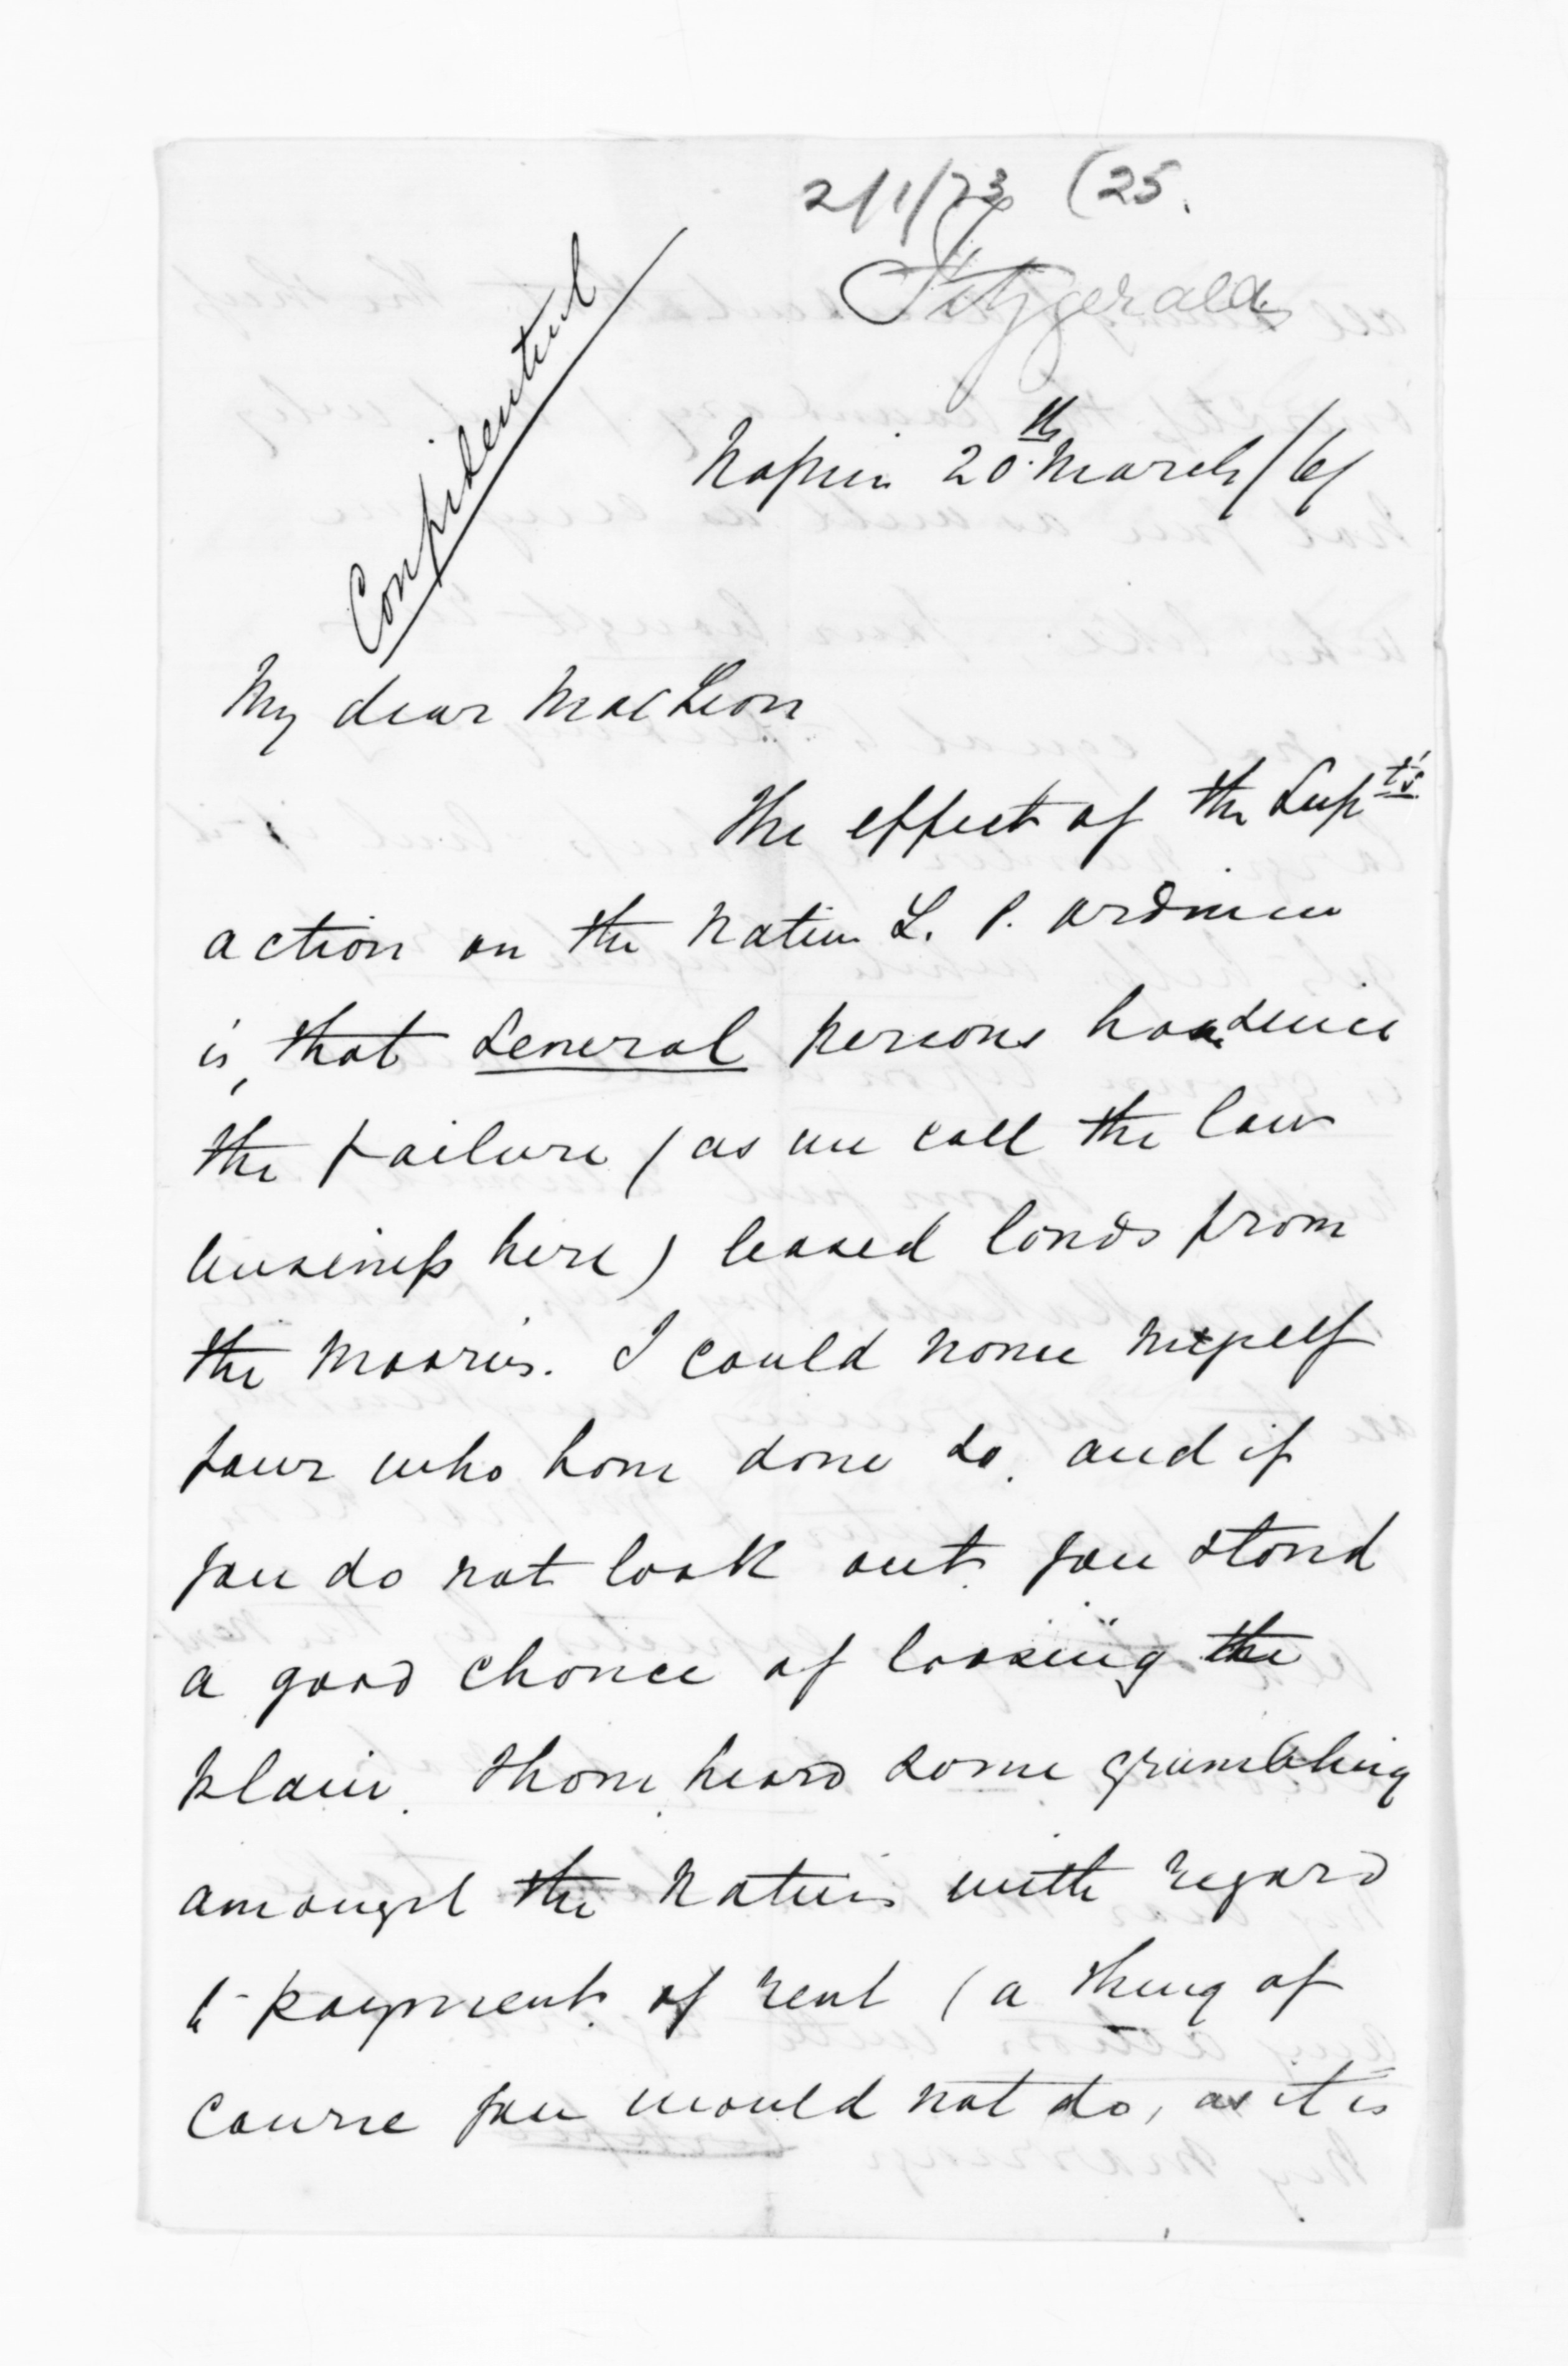 2/1/73 (25.
Fitzgerald
Confidential
Napier 20.th March/61
My dear MacLean
The effect of the Supt's
action on the Native L. P. ordinance
is, that Several persons have since
the failure (as we call the law
business here) leased lands from
the Maories. I could name myself
four who have done so. and if
you do not look out you stand
a good chance of loosing the
plain. I have heard some grumbling
amongst the Natives with regard
to payment of rent (a thing of
course you would not do, as it is